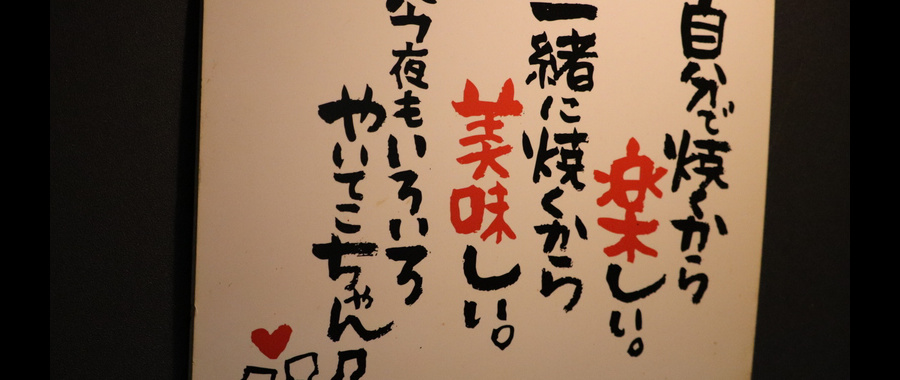 自分で焼くから
楽しい。
一緒に焼くから
美味しい。
今夜もいろいろ
やいてこちゃん